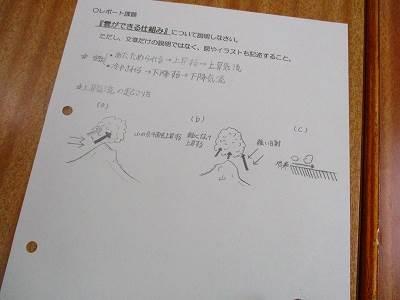 ○レポート課題
『雲ができる仕組み』について説明しなさい。
ただし、文章だけの説明ではなく、図やイラストも記述すること。
・あたためられる→上昇する→上昇気流
・冷やされる→下降する→下降気流
上昇気流の起こり方
(a)
(b)
(c)
山の斜面を上昇する
軽くなって
上昇する
強い日射
山